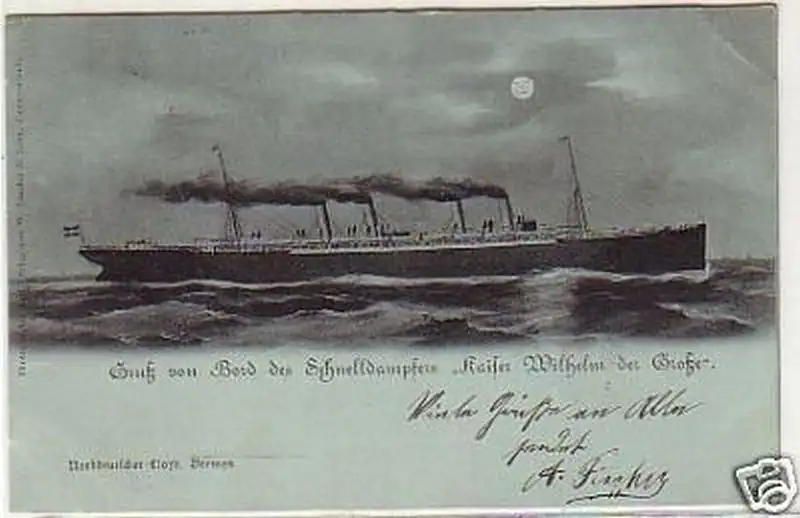 Gruß von Bord des Schnelldampfers „Kaiser Wilhelm der Große“.
Viele Grüße an Alle
sendet
A.
Norddeutscher Lloyd, Bremen